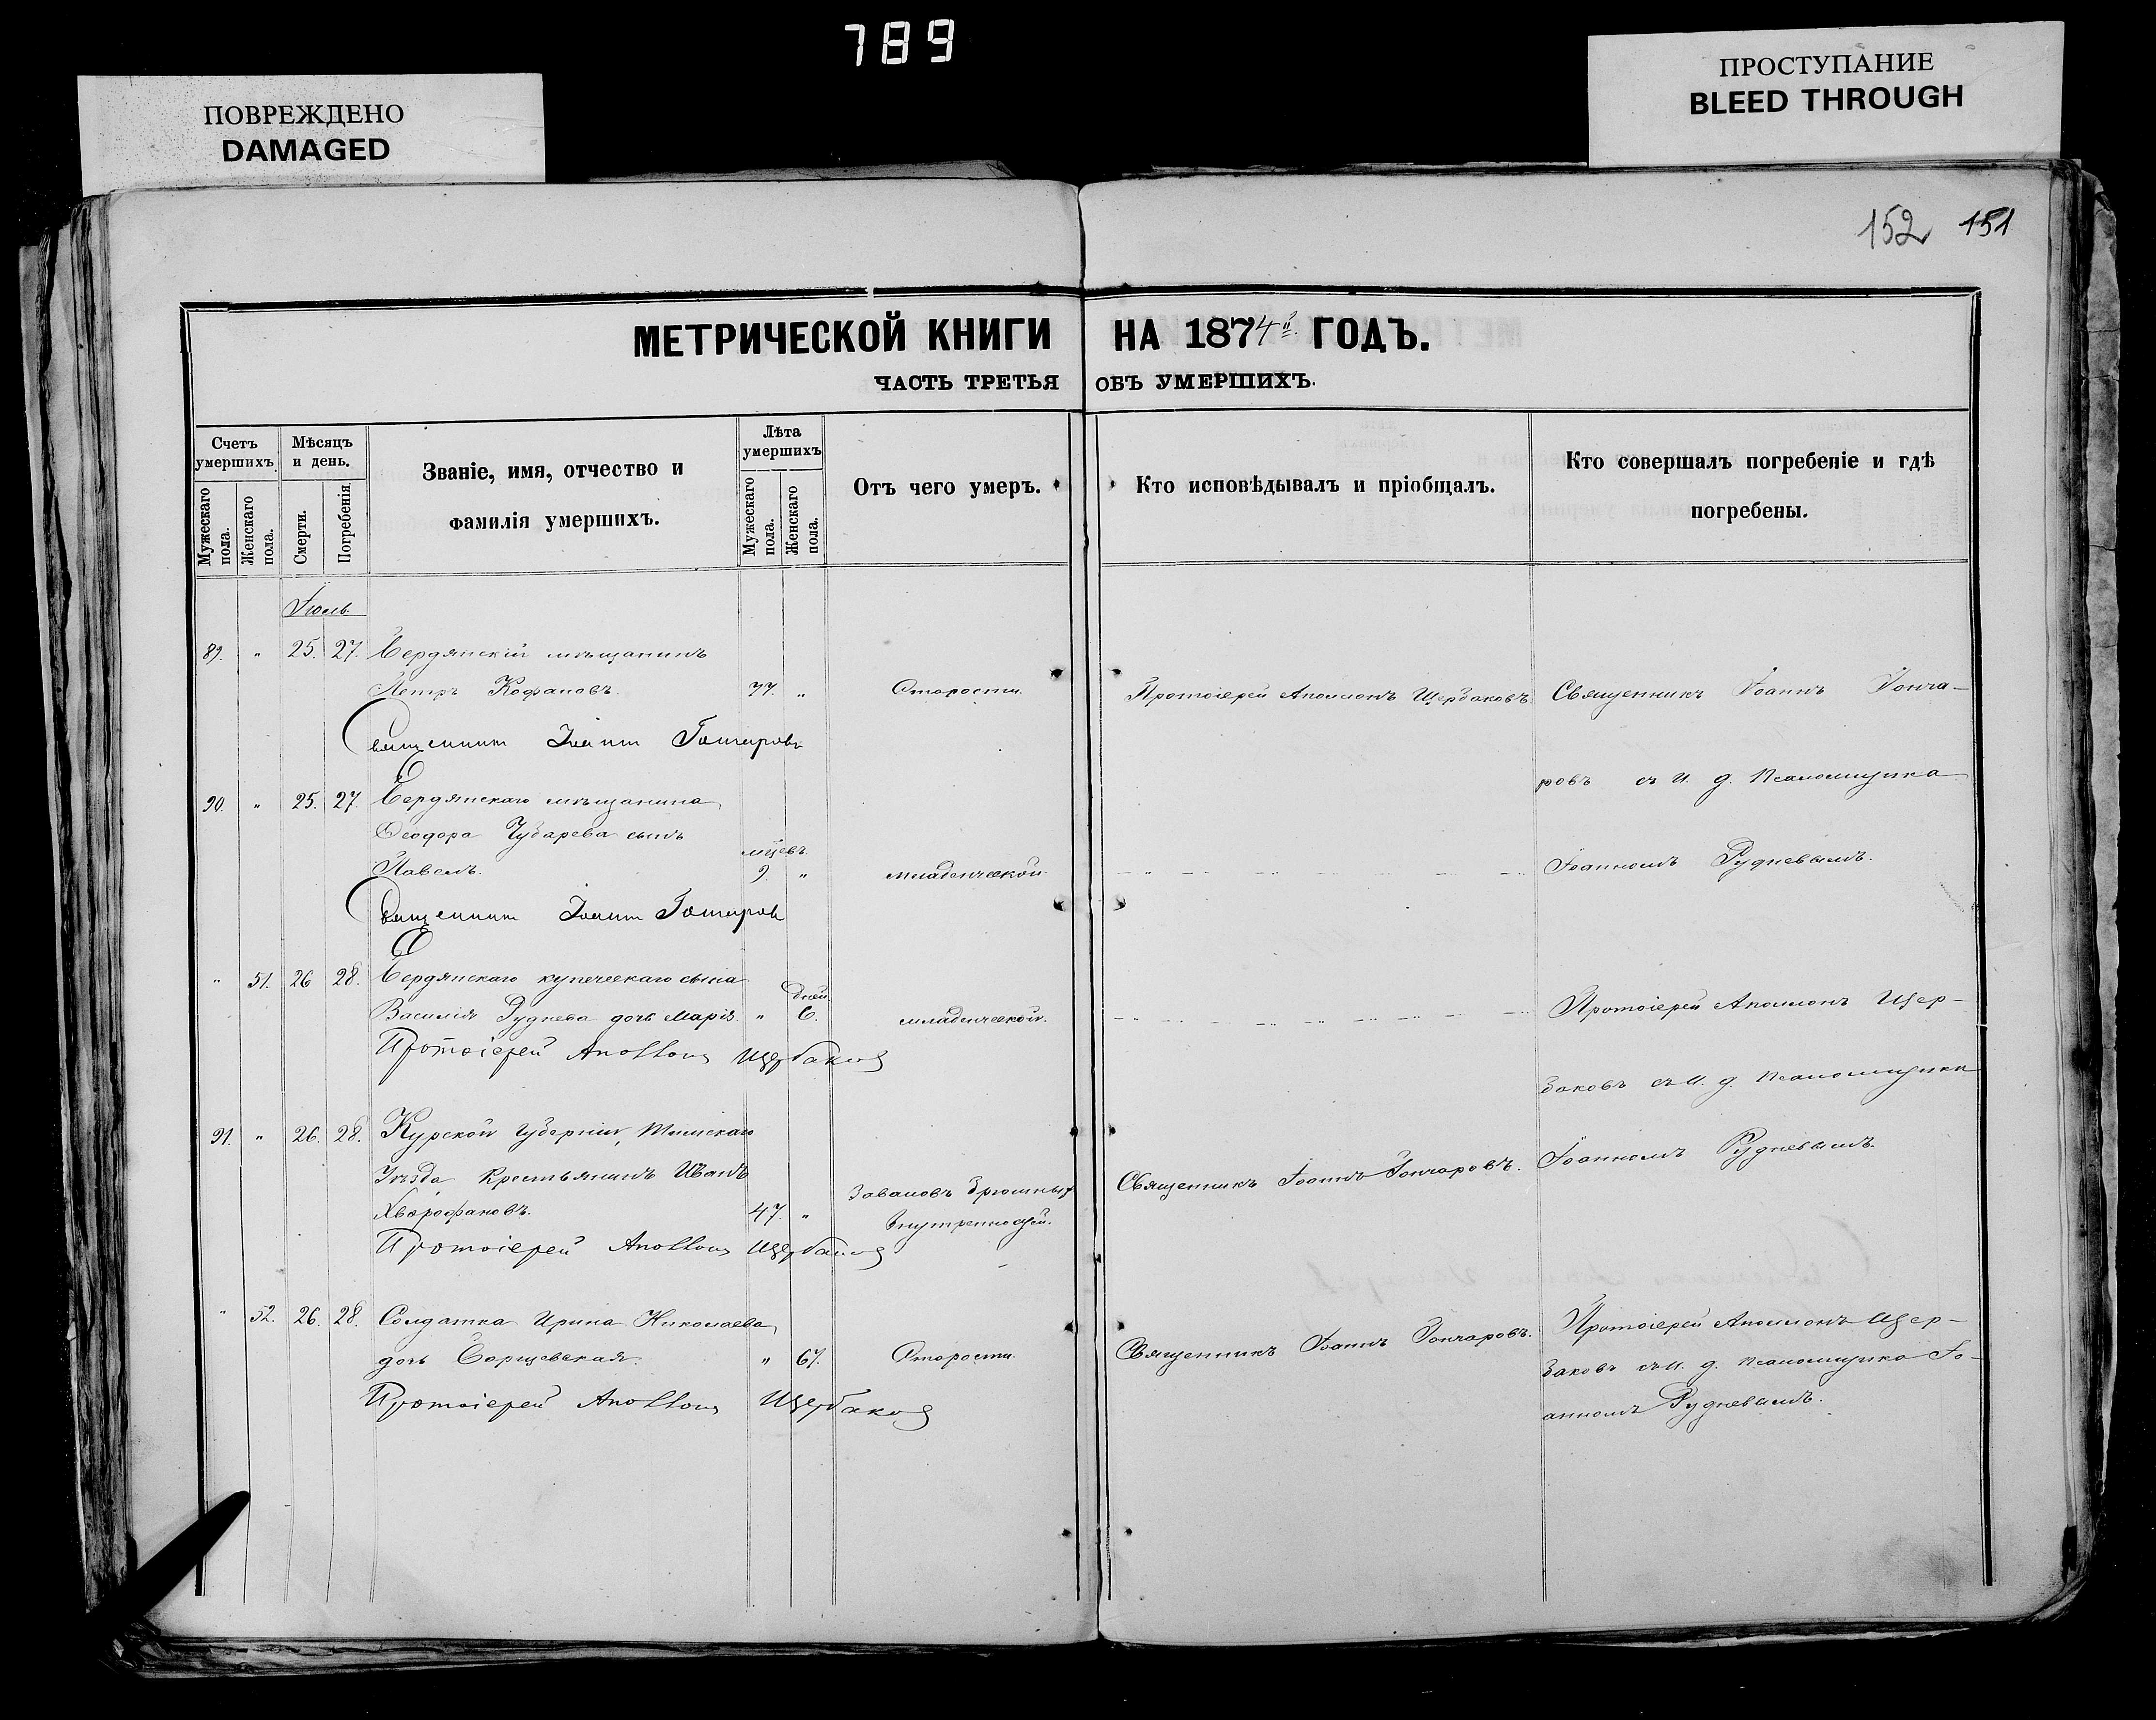 789
ПОВРЕЖДЕНО
DAMAGED
ПРОСТУПАНИЕ
BLEED THROUGH
152 151
МЕТРИЧЕСКОЙ КНИГИ НА 1874й ГОДЪ.
ЧАСТЬ ТРЕТЬЯ ОБЪ УМЕРШИХЪ.
Счетъ умершихъ.
Мужескаго пола.
Женскаго пола.
Мѣсяцъ и день.
Смерти.
Погребенія.
Званіе, имя, отчество и
фамилія умершихъ.
Лѣта умершихъ
Мужескаго пола.
Женскаго пола.
Отъ чего умеръ.
Кто исповѣдывалъ и пріобщалъ.
Кто совершалъ погребеніе и гдѣ
погребены.
Іюль.
89. " 25. 27. Бердянскій мѣщанинъ
Петръ Кофановъ. 77. " Старости. Протоіерей Аполлонъ Щербаковъ. Священникъ Іоаннъ Гонча-
Священникъ Іоаннъ Гончаровъ
ровъ съ И. д. Псаломщика
90. " 25. 27. Бердянскаго мѣщанина
Ѳеодора Чубарева сынъ
Павелъ. мцевъ. 9. " младенческой. Іоанномъ Рудневымъ.
Священникъ Іоаннъ Гончаров
" 51. 26 28. Бердянскаго купеческаго сына
Василія Руднева дочь Марія. " дней 6. младенческой. Протоіерей Аполлонъ Щер-
Протоіерей Аполлонъ Щербаков
баковъ съ И. д. Псаломщика
91. " 26. 28. Курской Губерніи, Тимскаго
Уѣзда Крестьянинъ Иванъ
47. " Заваловъ брюшныхъ внутренностей. Священникъ Іоаннъ Гончаровъ. Іоанномъ Рудневымъ.
Протоіерей Аполлонъ Щербаков
" 52. 26. 28. Солдатка Ирина Николаева
дочь Борщевская. " 67. Старости. Священникъ Іоаннъ Гончаровъ. Протоіерей Аполлонъ Щер-
баковъ съ И. д. псаломщика Іо-
анномъ Рудневымъ.
Протоіерей Аполлонъ Щербаков